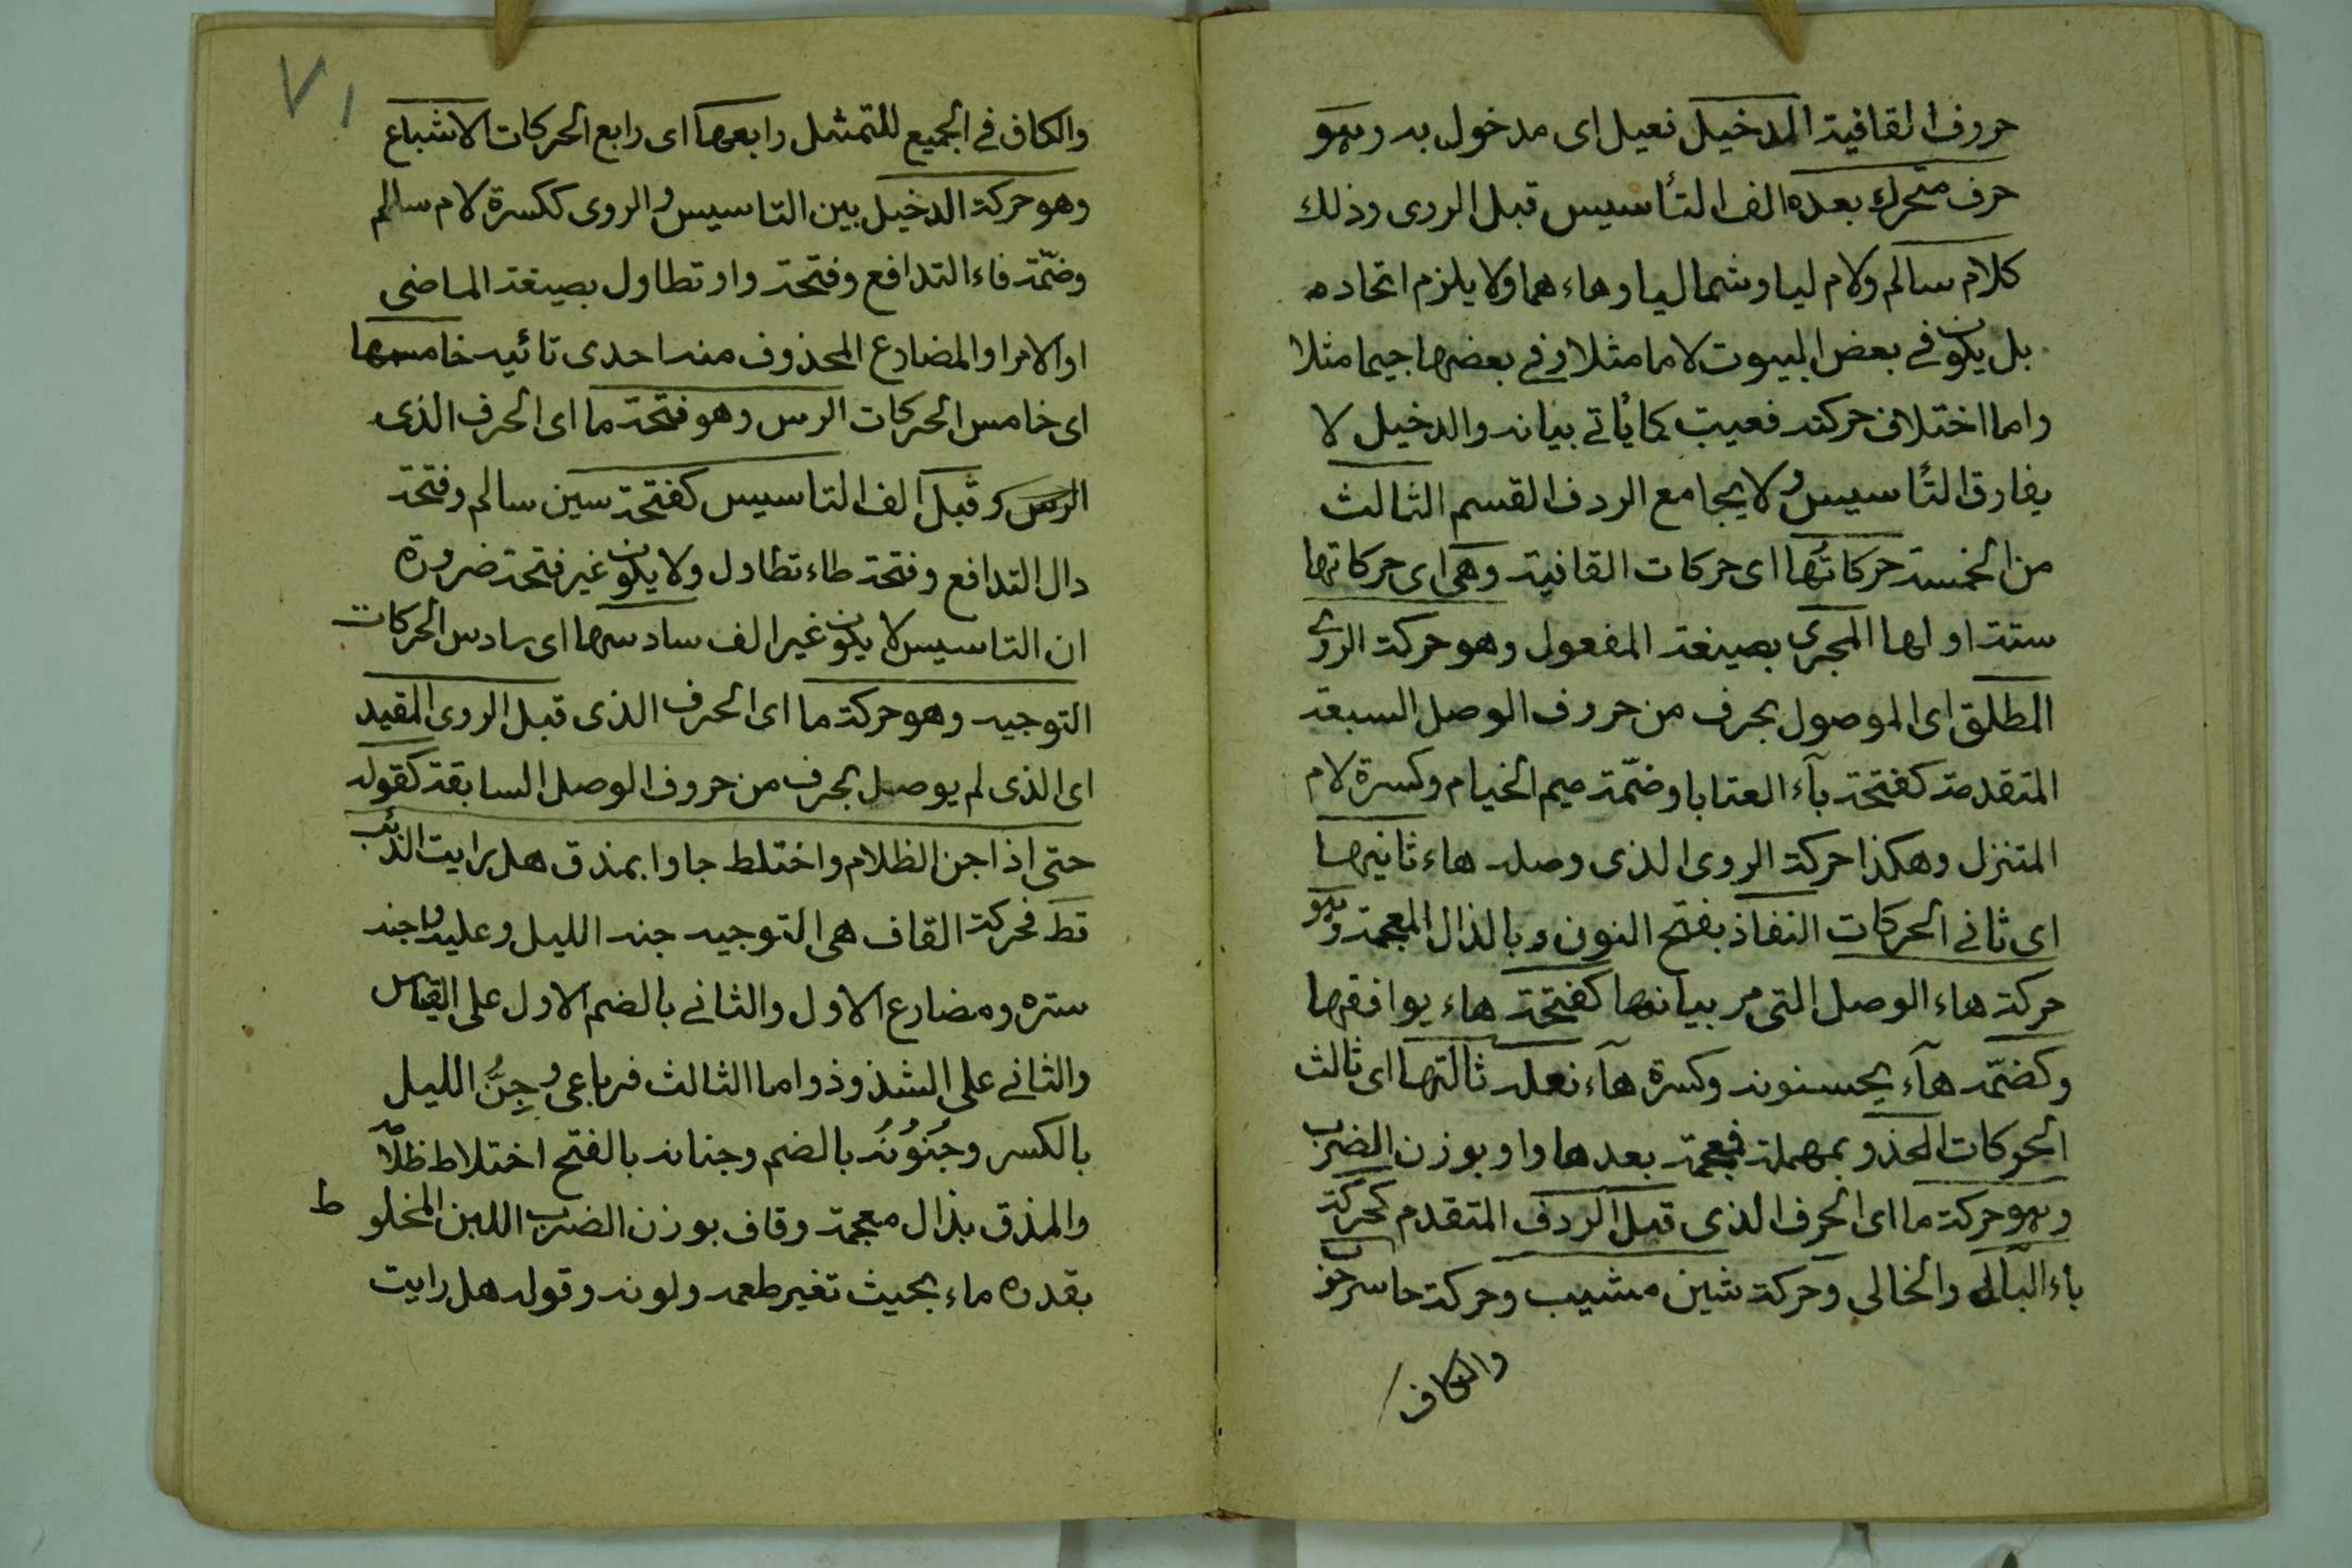 حروف القافية الدخيل فعيل اى مدخول به وهو
حرف متحرك بعده الف التأسيس قبل الروى وذلك
كلام سالم ولام ليا وشماليا وهاء هما ولا يلزم اتحاده
بل يكون فى بعض البيوت لاما مثلا وفى بعضها جيما مثلا
واما اختلاف حركته فعيب كما ياتى بيانه والدخيل لا
يفارق التأسيس ولا يجامع الردف القسم الثالث
من الخمسة حركاتها اى حركات القافية وهى اى حركاتها
ستة اولها المجرى بصيغة المفعول وهو حركة الروى
المطلق اى الموصول بحرف من حروف الوصل السبعة
المتقدمة كفتحة بآء العتابا وضمّة ميم الخيام وكسرة لام
المتنزل وهكذا حركة الروى الذى وصله هاء ثانيها
اى ثانى الحركات النفاذ بفتح النون وبالذال المعجمة وهو
حركة هاء الوصل التى مر بيانها كفتحة هاء يوافقها
وكضمّه هآء يحسنونه وكسرة هآء نعله ثالثها اى ثالث
الحركات الحذو بمهملة فمعجمة بعدها واو بوزن الضرب
وهو حركة ما اى الحرف الذى قبل الردف المتقدم كحركة
باء البالى والخالى وحركة شين مشيب وحركة حا سرحوب
والكاف
٧١
والكاف فى الجميع للتمثيل رابعها اى رابع الحركات الاشباع
وهو حركة الدخيل بين التاسيس والروى ككسرة لام سالم
وضمّة فاء التدافع وفتحة واو تطاول بصيغة الماضى
او الامر او المضارع المحذوف منه احدى تائيه خامسها
اى خامس الحركات الرس وهو فتحة ما اى الحرف الذى
الرس و قبل الف التاسيس كفتحة سين سالم وفتحة
دال التدافع وفتحة طاء تطاول ولا يكون غير فتحة ضرورة
ان التاسيس لا يكون غير الف سادسها اى سادس الحركات
التوجيه وهو حركة ما اى الحرف الذى قبل الروى المقيد
اى الذى لم يوصل بحرف من حروف الوصل السابقة كقوله
حتى اذا جن الظلام واختلط جاوا بمذق هل رايت الذئب
قط فحركة القاف هى التوجيه جنه الليل وعليه واجنه
ستره ومضارع الاول والثانى بالضم الاول على القياس
والثانى على الشذوذ واما الثالث فرباعى وجِنُّ الليل
بالكسر وجُنُونُه بالضم وجنانه بالفتح اختلاط ظلامه
والمذق بذال معجمة وقاف بوزن الضرب اللبن المخلو ط
بقدره ماء بحيث تغير طعمه ولونه وقوله هل رايت